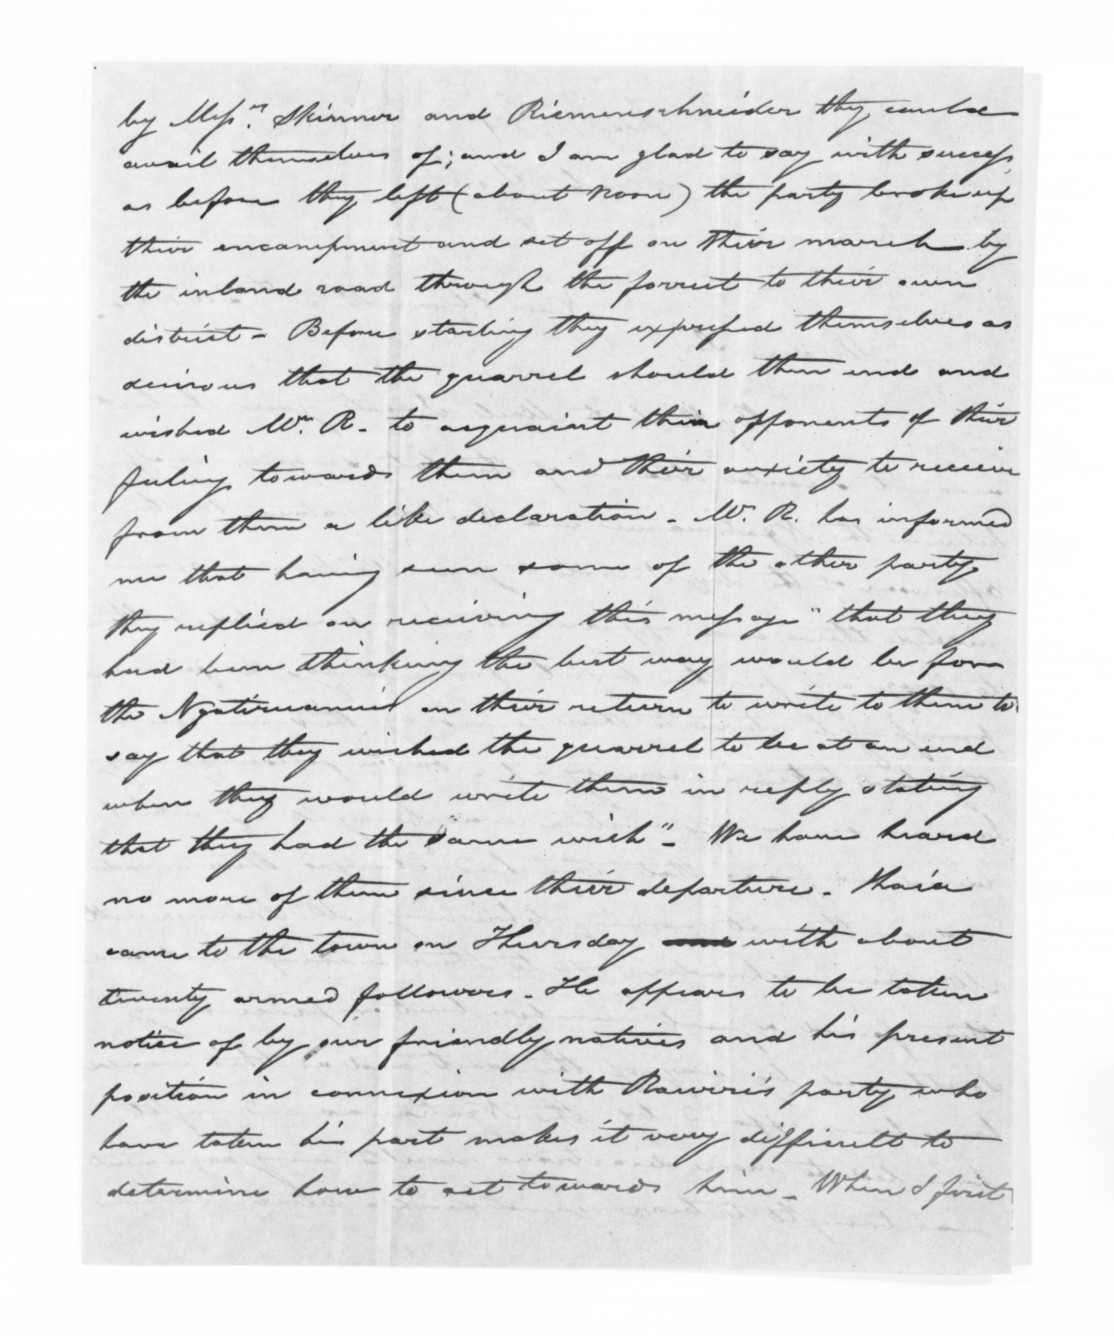 by Messrs. Skinner and Riemenschneider they could
avail themselves of; and I am glad to say with success,
as before they left (about Noon) the party broke up
their encampment and set off on their march by
the inland road through the forrest to their own
district - Before starting they expressed themselves as
desirous that the quarrel should then end and
wished Mr. R. to acquaint their opponents of their
feeling towards them and their anxiety to receive
from them a like declaration - Mr. R. has informed
me that having seen some of the other party
they replied on receiving this message "that they
had been thinking the best way would be for
the Ngatiruanui on their return to write to them to
say that they wished the quarrel to be at an end
when they would write them in reply stating
that they had the same wish" - We have heard
no more of them since their departure - Ihaia
came to the town on Thursday with about
twenty armed followers - He appears to be taken
notice of by our friendly natives and his present
position in connexion with Rawiri's party who
have taken his part makes it very difficult to
determine how to act towards him - When I first